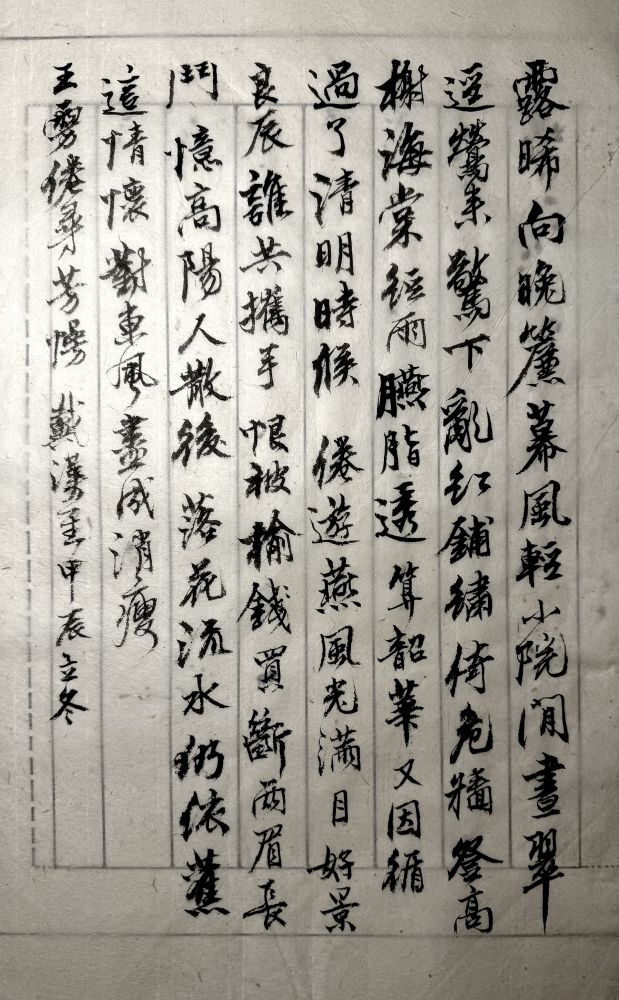 露晞向晚簾幕風輕小院閒晝翠
逕鶯來驚下亂紅鋪繡倚危牆登高
榭海棠經雨臙脂透算韶華又因循
過了清明時候 倦遊燕風光滿目好景
良辰誰共攜手 恨被榆錢買斷兩眉長
鬥 憶高陽人散後落花流水仍依舊
這情懷對東風盡成消瘦
王雱倦尋芳慢 戴漢 甲辰立冬